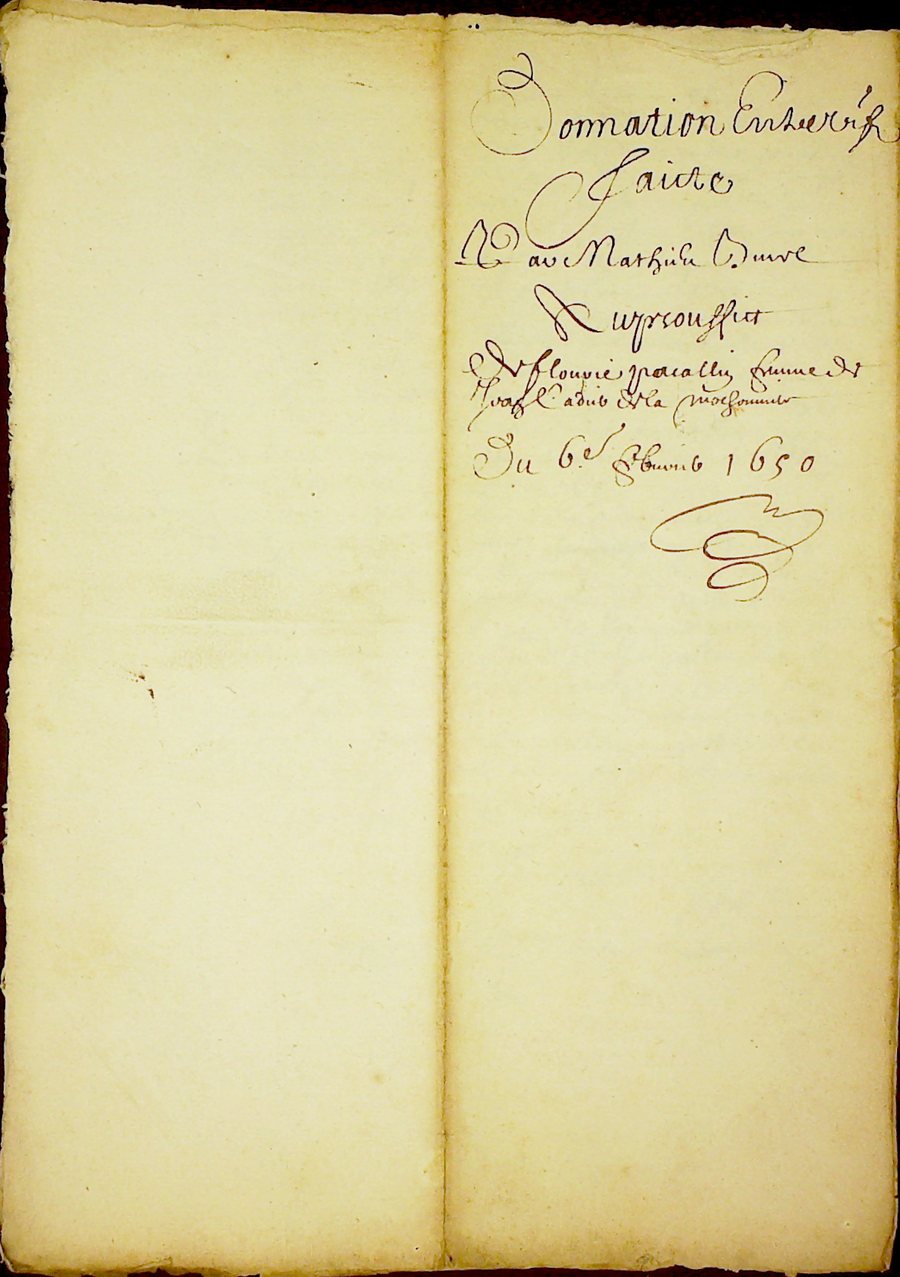 Donnation Entre vifz
Faicte
Par Mathieu
Au prouffict
De flourie pacallin femme de
de la
Du 6.e febvrier 1650